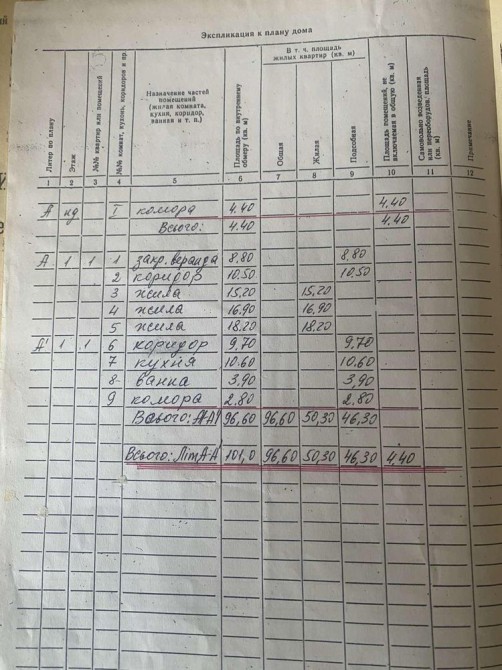 Экспликация к плану дома
Литер по плану
Этаж
№№ квартир или помещений
№№ комнат, кухонь, коридоров и пр.
Назначение частей помещений (жилая комната, кухня, коридор, ванная и т. п.)
Площадь по внутреннему обмеру (кв. м)
В т. ч. площадь жилых квартир (кв. м)
Общая
Жилая
Подсобная
Площадь помещений, не включаемая в общую (кв. м)
Самовольно возведенная или переоборудов. площадь (кв. м)
Примечание
1 2 3 4 5 6 7 8 9 10 11 12
А нд I комора 4.40 4.40
Всього: 4.40 4.40
А 1 1 1 закр. веранда 8.80 8.80
2 коридор 10.50 10.50
3 жила 15,20 15,20
4 жила 16.90 16,90
5 жила 18.20 18.20
А' 1 1 6 коридор 9,70 9,70
7 кухня 10.60 10.60
8 ванна 3,90 3,90
9 комора 2.80 2.80
Всього: АА' 96,60 96,60 50,30 46,30
Всього: Літ А-А' 101,0 96,60 50,30 46,30 4,40